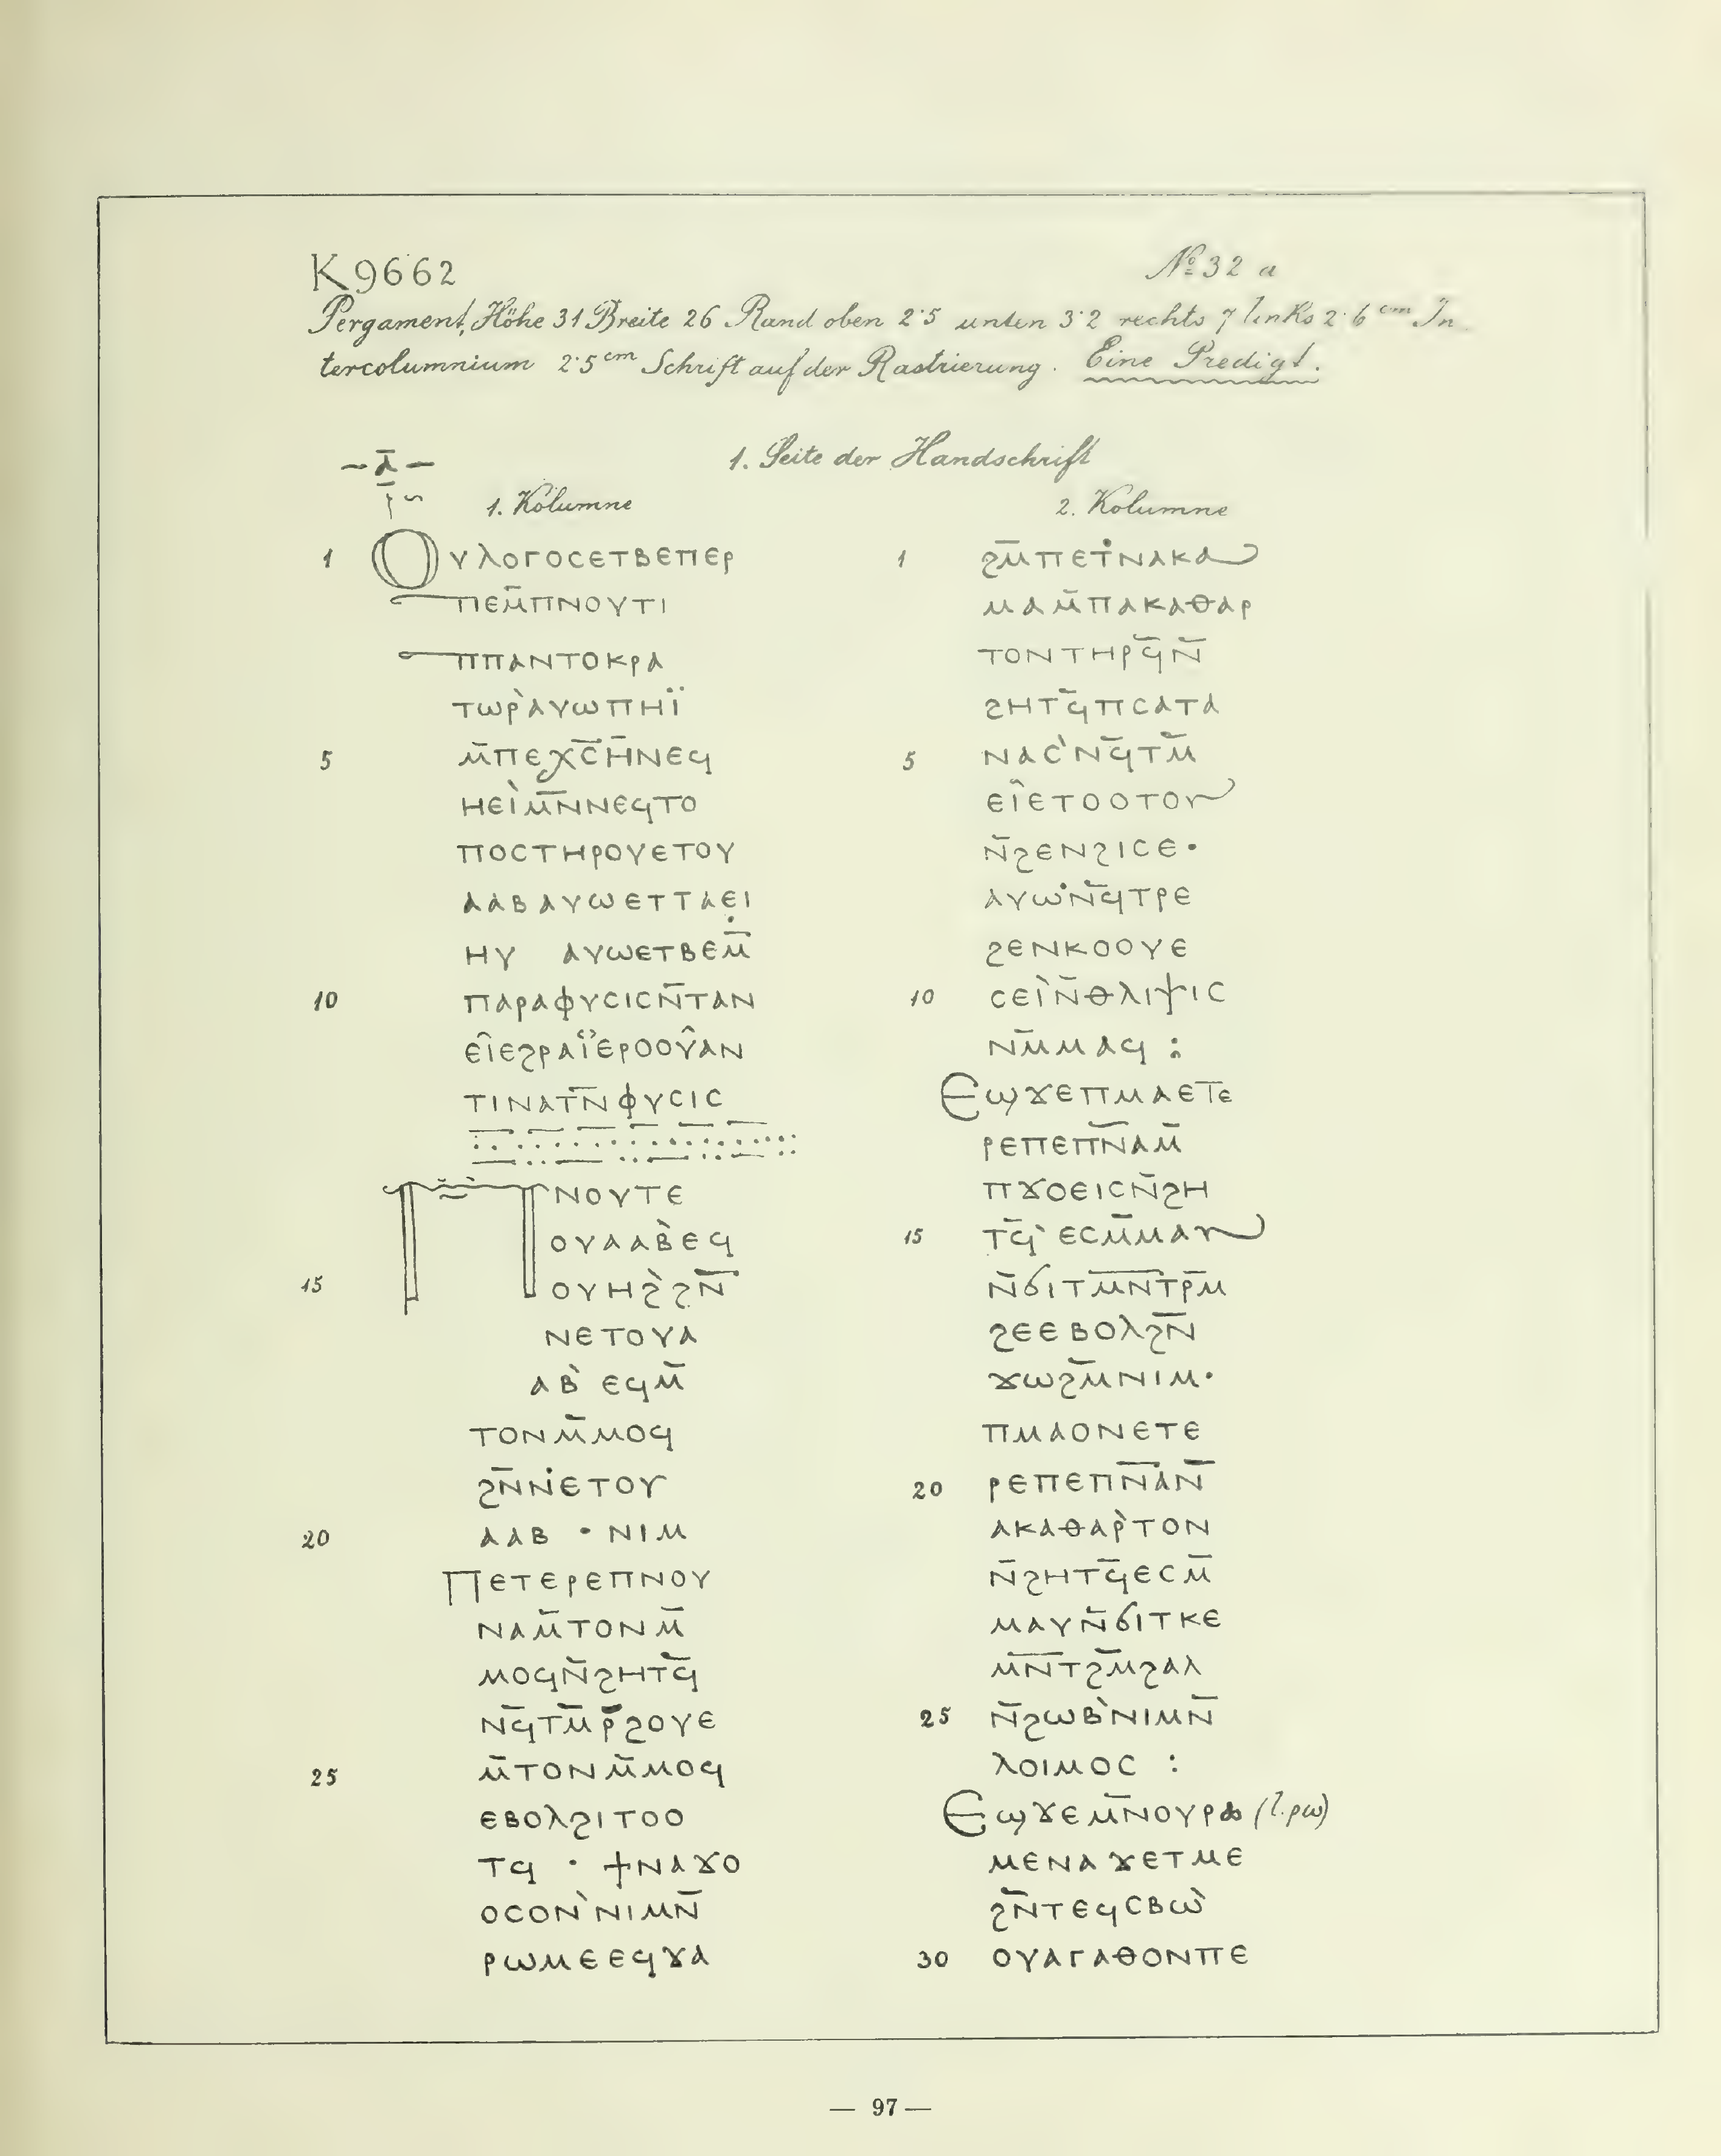 K 9662
№ 32 a
Pergament, Höhe 31 Breite 26 Rand oben 2·5 unten 3·2 rechts 7 links 2·6 cm. In
tercolumnium 2·5 cm Schrift auf der Rastrierung. Eine Predigt.
1. Seite der Handschrift
–ⲁ̅–
1. Kolumne
1 Ⲟⲩⲗⲟⲅⲟⲥⲉⲧⲃⲉⲡⲉⲣ
ⲡⲉⲙ̅ⲡⲛⲟⲩⲧⲓ
ⲡⲡⲁⲛⲧⲟⲕⲣⲁ
ⲧⲱⲣ̀ⲁⲩⲱⲡⲏⲓ̈
5 ⲙ̅ⲡⲉⲭ̅ⲥ̅ⲏ̅ⲛⲉϥ
ⲏⲉⲓ̀ⲙ̅ⲛ̅ⲛⲉϥⲧⲟ
ⲡⲟⲥⲧⲏⲣⲟⲩⲉⲧⲟⲩ
ⲁⲁⲃⲁⲩⲱⲉⲧⲧⲁⲉⲓ
ⲏⲩ ⲁⲩⲱⲉⲧⲃⲉⲙ̅
10 ⲡⲁⲣⲁⲫⲩⲥⲓⲥⲛ̅ⲧⲁⲛ
ⲉⲓ̂ⲉϩⲣⲁⲓ̈ⲉⲣⲟⲟⲩ̂ⲁⲛ
ⲧⲓⲛⲁⲧ̅ⲛ̅ⲫⲩⲥⲓⲥ
Ⲡⲛⲟⲩⲧⲉ
ⲟⲩⲁⲁⲃ̀ⲉϥ
15 ⲟⲩⲏϩ̀ϩⲛ̅
ⲛⲉⲧⲟⲩⲁ
ⲁⲃ̀ ⲉϥⲙ̅
ⲧⲟⲛⲙ̅ⲙⲟϥ
ϩⲛ̅ⲛ̇ⲉⲧⲟⲩ
20 ⲁⲁⲃ · ⲛⲓⲙ
Ⲡⲉⲧⲉⲣⲉⲡⲛⲟⲩ
ⲛⲁⲙ̅ⲧⲟⲛⲙ̅
ⲙⲟϥⲛ̅ϩⲏⲧϥ̅
ⲛϥ̅ⲧⲙ̅ⲣ̅ϩⲟⲩⲉ
25 ⲙ̅ⲧⲟⲛⲙ̅ⲙⲟϥ
ⲉⲃⲟⲗϩⲓⲧⲟⲟ
ⲧϥ · ϯⲛⲁϫⲟ
ⲟⲥⲟⲛ̀ⲛⲓⲙⲛ̅
ⲣⲱⲙⲉⲉϥϫⲁ
2. Kolumne
1 ϩⲙ̅ⲡⲉⲓ̇ⲛⲁⲕⲁ
ⲙⲁⲙ̅ⲡⲁⲕⲁⲑⲁⲣ
ⲧⲟⲛⲧⲏⲣϥ̅ⲛ̅
ϩⲏⲧϥ̅ⲡⲥⲁⲧⲁ
5 ⲛⲁⲥ̀ⲛϥ̅ⲧⲙ̅
ⲉⲓ̂ⲉⲧⲟⲟⲧⲟⲩ
ⲛ̅ϩⲉⲛϩⲓⲥⲉ·
ⲁⲩⲱⲛ̇ϥ̅ⲧⲣⲉ
ϩⲉⲛⲕⲟⲟⲩⲉ
10 ⲥⲉⲓ̀ⲛ̅ⲑⲗⲓⲯⲓⲥ
ⲛⲙ̅ⲙⲁϥ :
Ⲉϣϫⲉⲡⲙⲁⲉⲧⲉ
ⲣⲉⲡⲉⲡ̅ⲛ̅ⲁⲙ̅
ⲡϫⲟⲉⲓⲥⲛ̅ϩⲏ
15 ⲧϥ̅̀ ⲉⲥⲙ̅ⲙⲁⲩ
ⲛ̅ϭⲓⲧⲙ̅ⲛ̅ⲧⲣ̅ⲙ
ϩⲉⲉⲃⲟⲗϩⲛ̅
ϫⲱϩⲙ̅ⲛⲓⲙ·
ⲡⲙⲁⲟⲛⲉⲧⲉ
20 ⲣⲉⲡⲉⲡⲛ̅ⲁ̅ⲛ̅
ⲁⲕⲁⲑⲁⲣ̀ⲧⲟⲛ
ⲛ̅ϩⲏⲧϥ̅ⲉⲥⲙ̅
ⲙⲁⲩⲛ̅ϭⲓⲧⲕⲉ
ⲙⲛ̅ⲧϩⲙ̅ϩⲁⲗ
25 ⲛ̅ϩⲱⲃ̀ⲛⲓⲙⲛ̅
ⲗⲟⲓⲙⲟⲥ :
Ⲉϣϫⲉⲙ̅ⲛⲟⲩⲣⲟ (l. ⲣⲱ)
ⲙⲉⲛⲁϫⲉⲧⲙⲉ
ϩⲛ̅ⲧⲉϥⲥⲃⲱ̀
30 ⲟⲩⲁⲅⲁⲑⲟⲛⲡⲉ
— 97 —